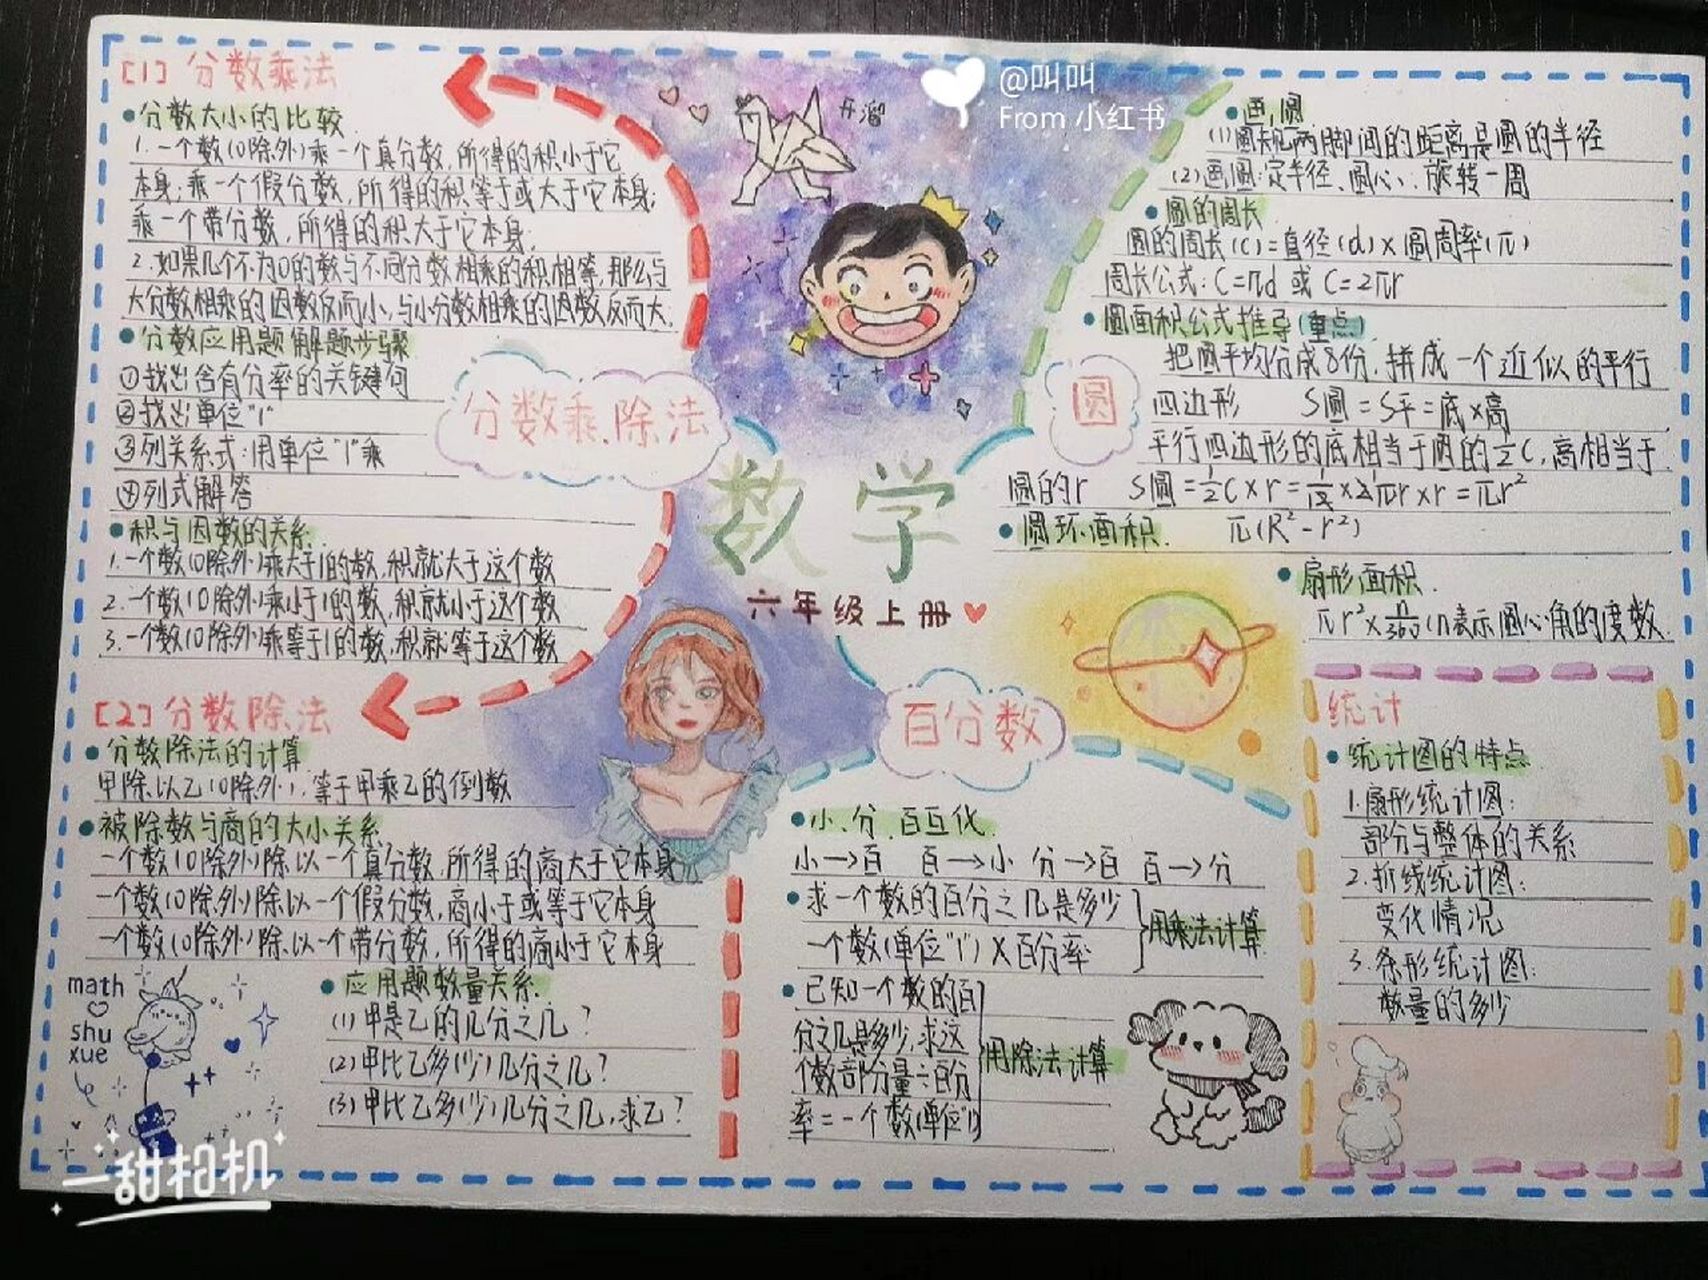 @叫叫
From 小红书
开溜
[1] 分数乘法
分数大小的比较
1.一个数(0除外)乘一个真分数,所得的积小于它
本身;乘一个假分数,所得的积等于或大于它本身;
乘一个带分数,所得的积大于它本身.
2.如果几个不为0的数与不同分数相乘的积相等,那么与
大分数相乘的因数反而小,与小分数相乘的因数反而大.
分数应用题解题步骤
①找出含有分率的关键句
②找出单位"1"
③列关系式:用单位"1"乘
④列式解答
积与因数的关系
1.一个数(0除外)乘大于1的数,积就大于这个数
2.一个数(0除外)乘小于1的数,积就小于这个数
3.一个数(0除外)乘等于1的数,积就等于这个数
分数乘.除法
[2] 分数除法
分数除法的计算
甲除以乙(0除外),等于甲乘乙的倒数
被除数与商的大小关系
一个数(0除外)除以一个真分数,所得的商大于它本身
一个数(0除外)除以一个假分数,商小于或等于它本身
一个数(0除外)除以一个带分数,所得的商小于它本身
应用题数量关系
(1)甲是乙的几分之几?
(2)甲比乙多(少)几分之几?
(3)甲比乙多(少)几分之几,求乙?
math
shu
xue
一甜相机
数学
六年级上册
圆
画圆
(1)圆规两脚间的距离是圆的半径
(2)画圆:定半径、圆心、旋转一周
圆的周长
圆的周长(C)=直径(d)×圆周率(π)
周长公式:C=πd 或 C=2πr
圆面积公式推导(重点)
把圆平均分成8份,拼成一个近似的平行
四边形 S圆=S平=底×高
平行四边形的底相当于圆的½C,高相当于
圆的r S圆=½C×r=½×2πr×r=πr²
圆环面积 π(R²-r²)
扇形面积
πr²×n/360(n表示圆心角的度数
百分数
小、分、百互化
小→百 百→小 分→百 百→分
求一个数的百分之几是多少
一个数(单位"1")×百分率
用乘法计算
已知一个数的百
分之几是多少,求这
个数部分量÷百分
率=一个数(单位"1")
用除法计算
统计
统计图的特点
1.扇形统计图:
部分与整体的关系
2.折线统计图:
变化情况
3.条形统计图:
数量的多少